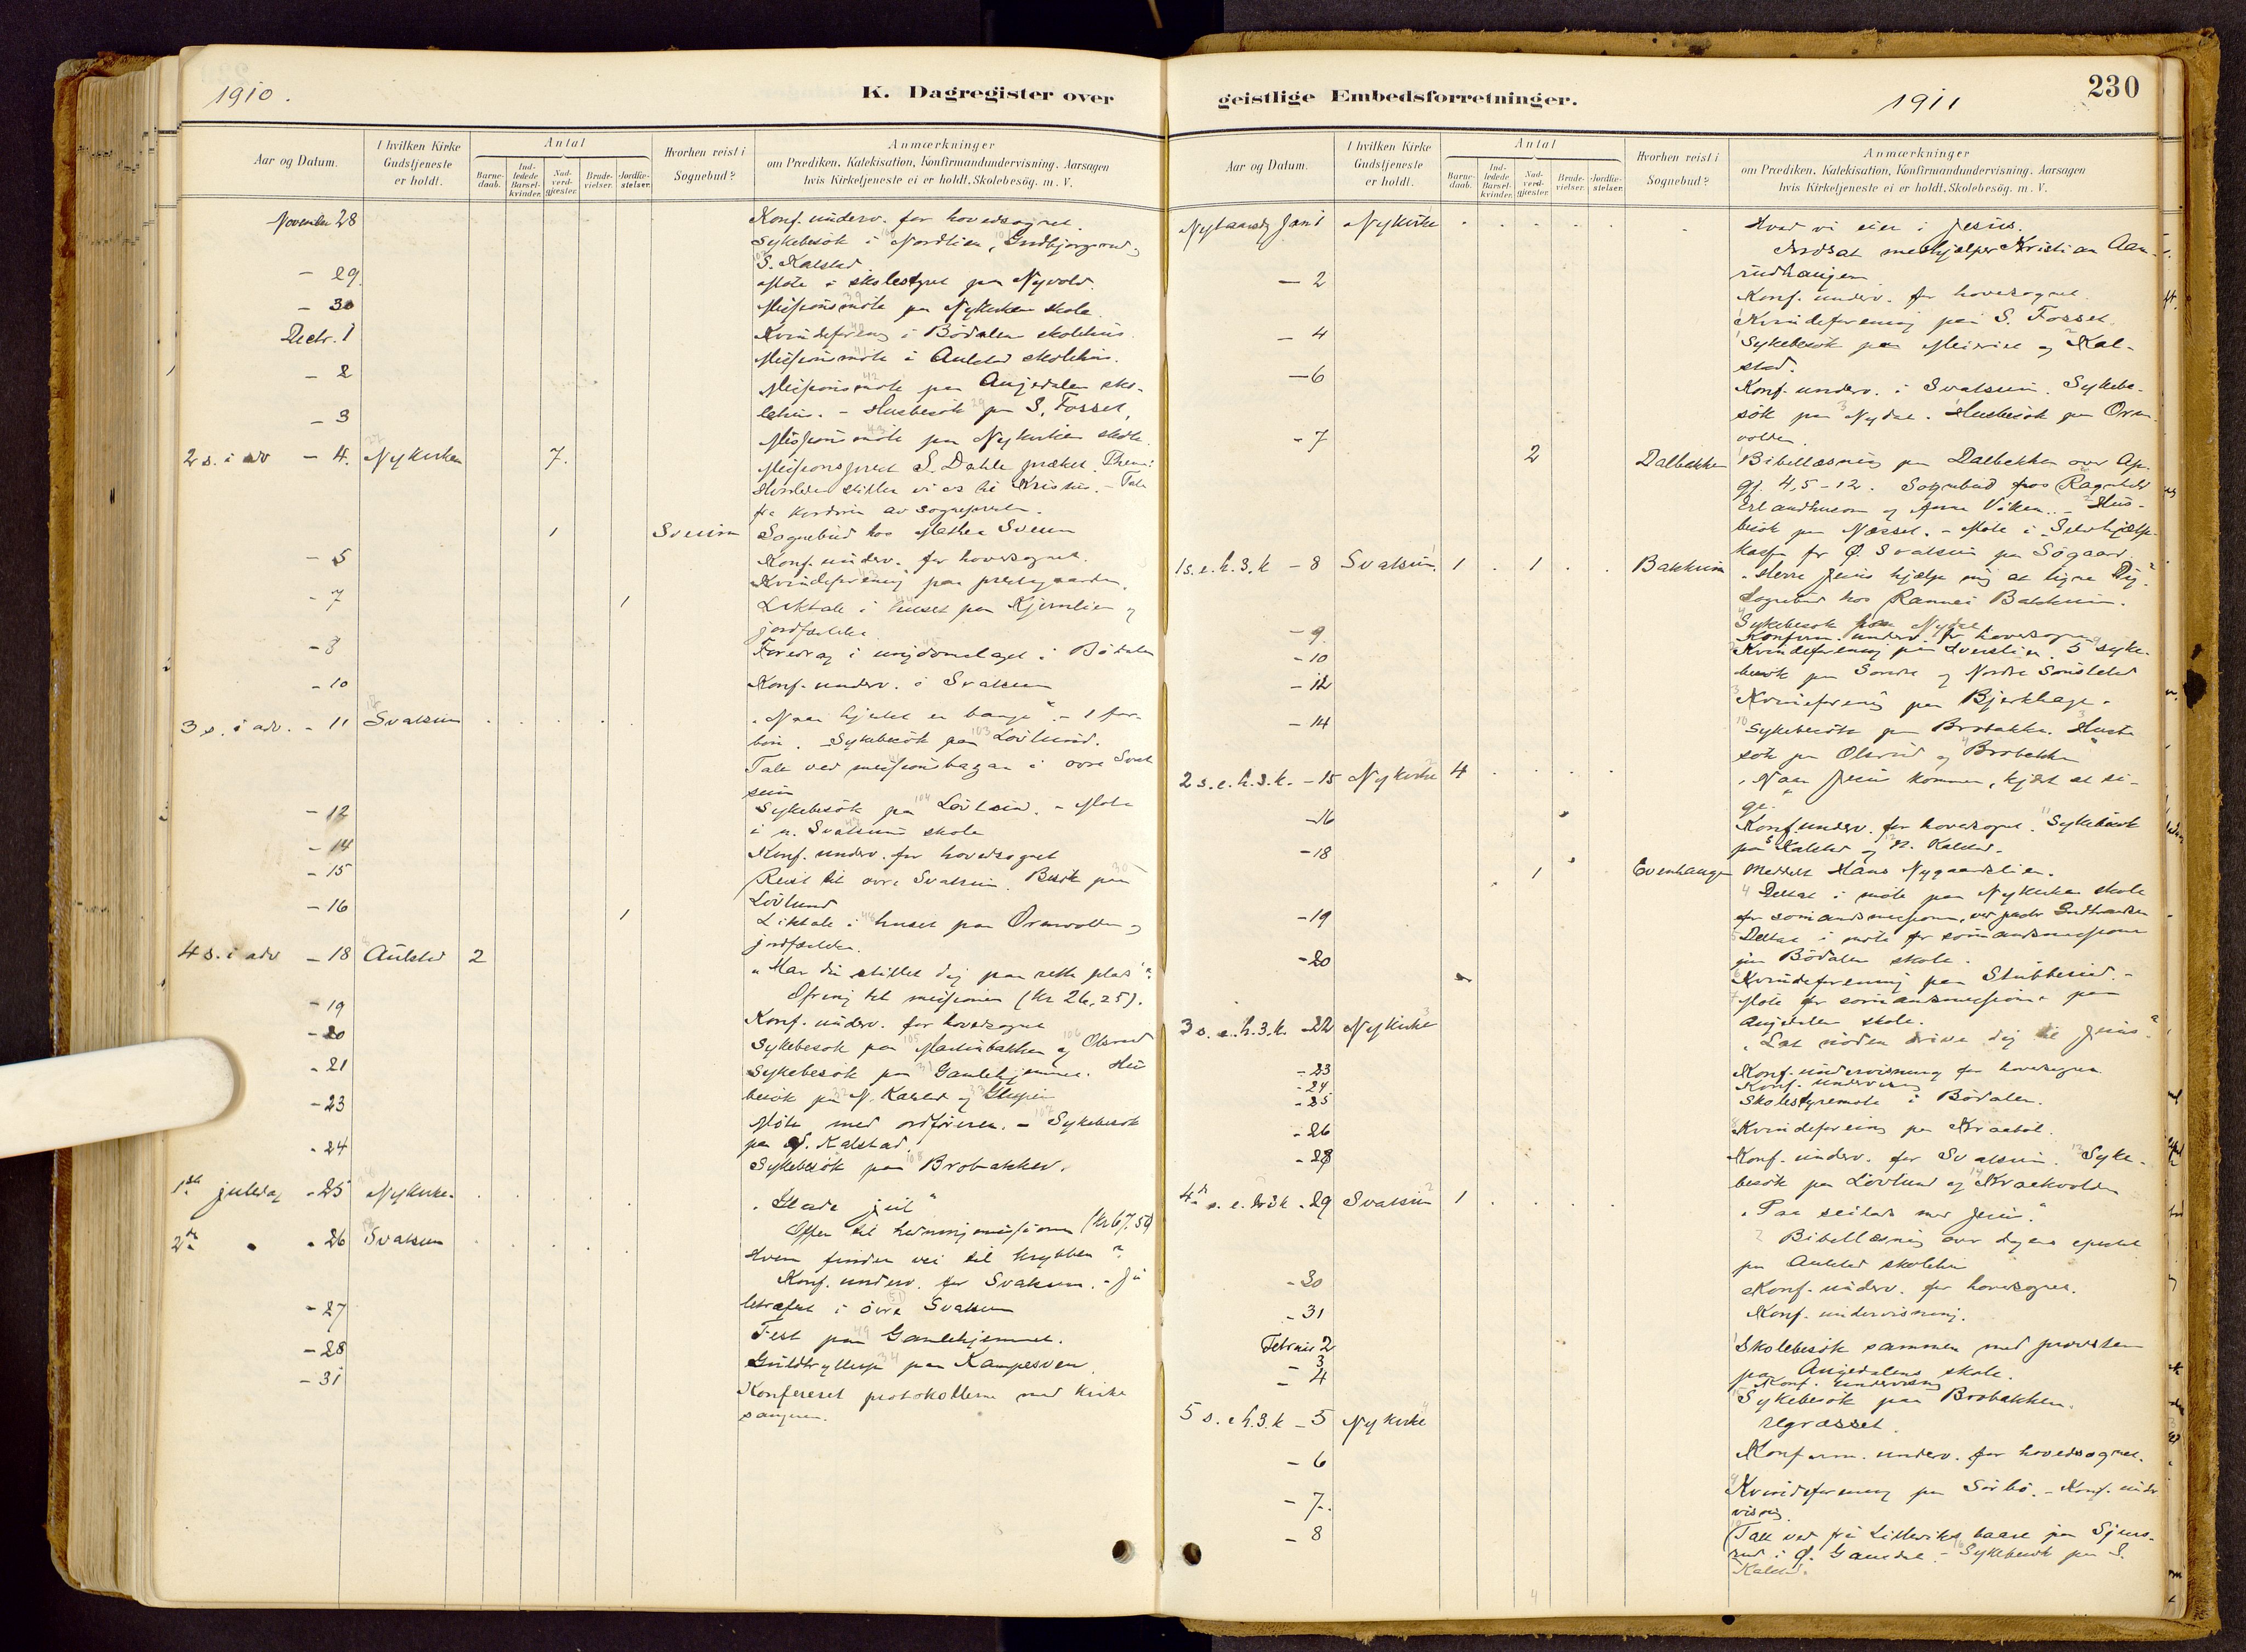 1910.
K. Dagregister over
Aar og Datum.
I hvilken Kirke Gudstjeneste er holdt.
Antal
Barne-daab.
Ind-ledede Barsel-kvinder.
Nad-verd-gjæster.
Brude-vielser.
Jordfæ-stelser.
Hvorhen reist i Sognebud?
Anmærkninger
om Prædiken, Katekisation, Konfirmandundervisning, Aarsagen
hvis Kirketjeneste ei er holdt, Skolebesög, m. V.
November 28
Konf. underv. for hovedsognet.
Sykebesök i Nordlien, Gudbjørgsrud og
S. Kalstad
- 29.
Møte i skolestyret paa Nyvold.
- 30
Missionsmøte paa Nykirken skole.
Decbr. 1
Kvindeforening i Bödalen skolehus.
Missionsmøte i Aulstad skolehus.
- 2
Missionsmøte paa Augedalen sko-
lehus. - Husbesök paa S. Fosset.
- 3
Missionsmøte paa Nykirken skole.
2 s. i adv - 4. Nykirken 7.
Missionsprest S. Dahle præket.
1 Sveum Sognebud hos Mathea Sveum
- 5
Konf. underv. for hovedsognet.
Kvindeforening paa prestegaarden.
- 7 1
Liktale i huset paa Kjernlien og
jordfæstelse.
- 8
Foredrag i ungdomslaget i Bödalen
- 10
Konf. underv. i Svatsum
3 s. i adv. - 11 Svatsum
"Naar hjertet er bange". - 1 for-
bön. - Sykebesök paa Lövlund.
Tale ved missionsbazar i øvre Svat
sum
- 12
Sykebesök paa Lövlund. - Møte
i n. Svatsum skole
- 14
Konf. underv. for hovedsognet
- 15
Reist til øvre Svatsum. Besök paa
Lövlund
- 16 1
Liktale i huset paa Ormvolden og
jordfæstelse.
4 s. i adv - 18 Aulstad 2
"Har du stillet dig paa rette plas"?
Ofring til missionen (Kr 26,25).
- 19
Konf. underv. for hovedsognet
- 20
Sykebesök paa Martinbakken og Olsrud
- 21
Sykebesök paa Gamlehjemmet. Hus
besök paa N. Kalstad og
- 23
Møte med ordføreren. - Sykebesök
paa S. Kalstad.
- 24
Sykebesök paa Brobakken.
1ste juledag - 25 Nykirke.
"Glade jul"
Offer til hedningemissionen (Kr 67.50)
2den " - 26 Svatsum
Hvem finder vei til krybben?
Konf. underv. for Svatsum. - Ju
letræfest i övre Svatsum
- 27
Fest paa Gamlehjemmet.
- 28
Guldbryllup paa Kampesveen
- 31
Konfereret protokollerne med kirke
sangeren.
geistlige Embedsforretninger.
1911
230
Aar og Datum.
I hvilken Kirke Gudstjeneste er holdt.
Antal
Barne-daab.
Ind-ledede Barsel-kvinder.
Nad-verd-gjæster.
Brude-vielser.
Jordfæ-stelser.
Hvorhen reist i Sognebud?
Anmærkninger
om Prædiken, Katekisation, Konfirmandundervisning, Aarsagen
hvis Kirketjeneste ei er holdt, Skolebesög, m. V.
Nytaarsdag Jan 1 Nykirke
Hvad vi eier i Jesus.
Indsat medhjælper Kristian Aam-
rudhaugen
- 2
Konf. underv. for hovedsognet.
Kvindeforening paa S. Fosset.
- 4
Sykebesök paa og Kal-
stad.
- 6
Konf. underv. i Svatsum. Sykebe-
sök paa Nydal. Husbesök paa Orm
volden.
- 7 2 Dalbakken
Bibellæsning paa Dalbakken over Ap.
gj. 4,5-12. Sognebud hos Ragnhild
Erlandhuson og Anne Viken. - Hus-
besök paa Næsset. - Møte i Selvhjælps-
kassen for Ø. Svatsum paa Sögaard.
1 s. e. h. 3. k - 8 Svatsum. 1 1 Bakkum
"Herre Jesus hjælp mig at ligne Dig".
Sognebud hos Rannei Bakkum.
Sykebesök paa Nydal.
- 9
Konfirm. underv. for hovedsognet
- 10
Kvindeforening paa Sverslien. 5 syke-
besök paa Söndre og Nordre Sönsteled
- 12
Kvindeforening paa Bjerkhage.
- 14
Sykebesök paa Brobakken. Husbe
sök paa Olsrud og Brobakken
2 s. e. h. 3. k. - 15 Nykirke 4
"Naar Jesus kommer, hjælp at se-
ge."
- 16
Konf. underv. for hovedsognet. Sykebesök
paa Kalstad og N. Kalstad.
- 18 1 Evenhaugen
Meddelt Hans Nygaardslien.
Deltat i møte paa Nykirken skole
- 19
Deltat i møte for sömandsmissionen
paa Bödalen skole.
- 20
Kvindeforening paa Stubberud. -
Møte for sömandsmissionen paa
Augedalen skole.
3 s. e. h. 3. k. - 22 Nykirke
"Lat nöden drive dig til Jesus".
- 23
Konf. undervisning for hovedsognet
- 24
Konf. undervisning
- 25
Skolestyremøte i Bödalen.
- 26
Kvindeforening paa Kraabøl.
- 28
Konf. underv. for Svatsum. Syke-
besök paa Lövlund og Kraakvolden
4de s. e. h 3 k - 29 Svatsum 1
"Paa seilads med Jesus."
Bibellæsning over dagens epistel
paa Aulstad skolehus
- 30
Konf. underv. for hovedsognet.
- 31
Konf. undervisning.
Februar 2
Skolebesök sammen med provsten
paa Augedalens skole.
- 3
Konf. undervisning
- 4
Sykebesök paa Brobakken.
5 s. e h. 3. k - 5 Nykirke
Ugræsset.
- 6
Konfirm. underv. for hovedsognet.
- 7.
Kvindeforening paa Sörbö. - Konf. under
visning.
- 8
Tale ved fru Lillevik's baare paa
i Ø. Gausdal. - Sykebesök paa S.
Kalstad.